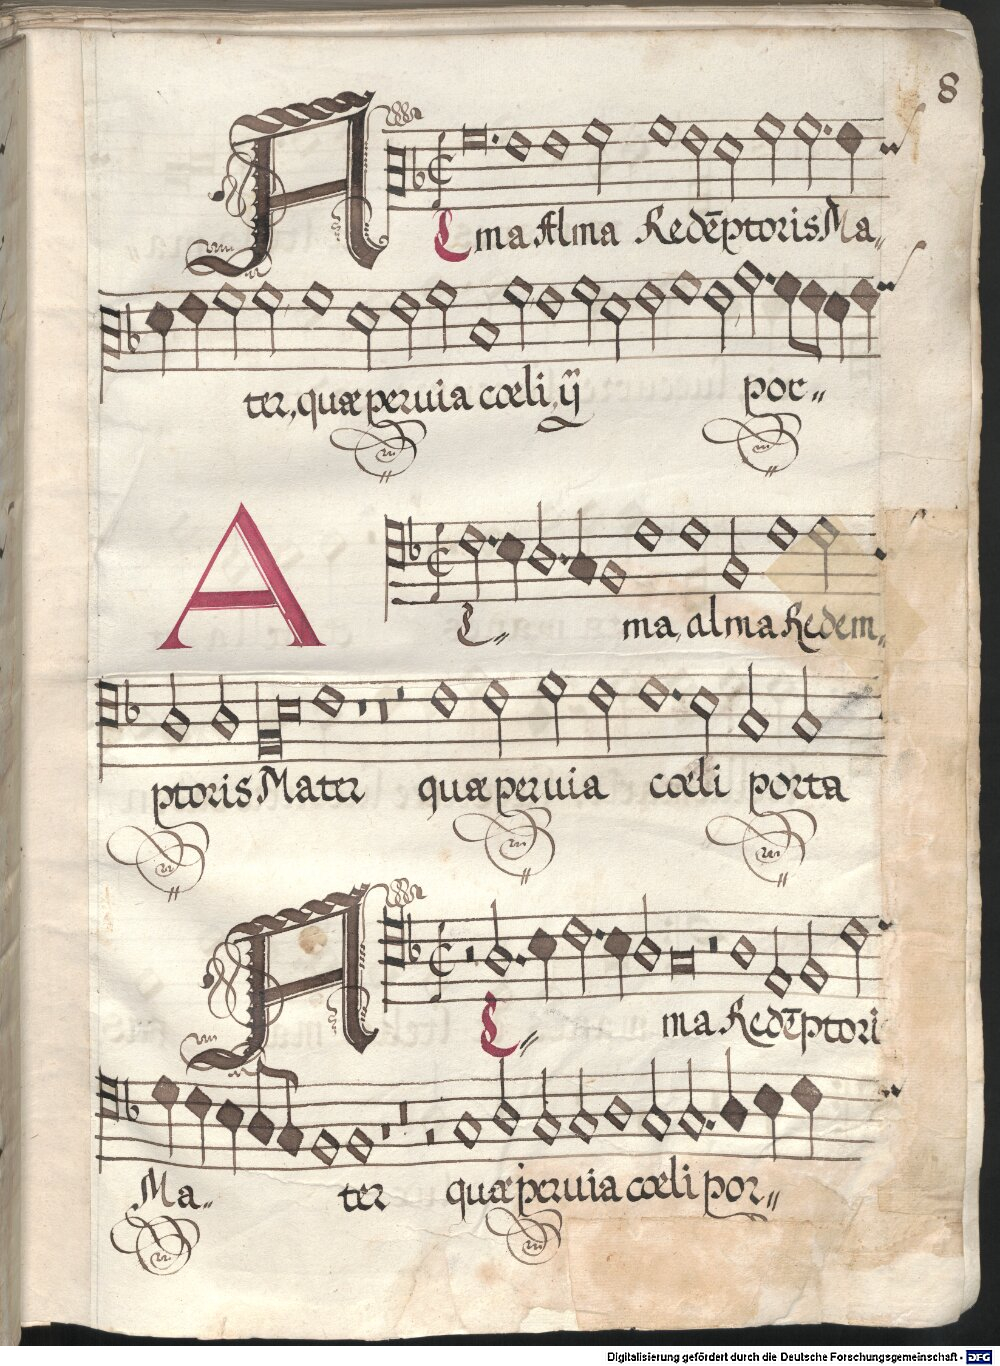 8
A Lma Alma Redēptoris Ma„
ter, quæ peruia cœli, ij por„
A L„ ma, alma Redem„
ptoris Mater quæ peruia cœli porta
A L„ ma Redēptoris
Ma„ ter quæ peruia cœli por„
Digitalisierung gefördert durch die Deutsche Forschungsgemeinschaft - DFG